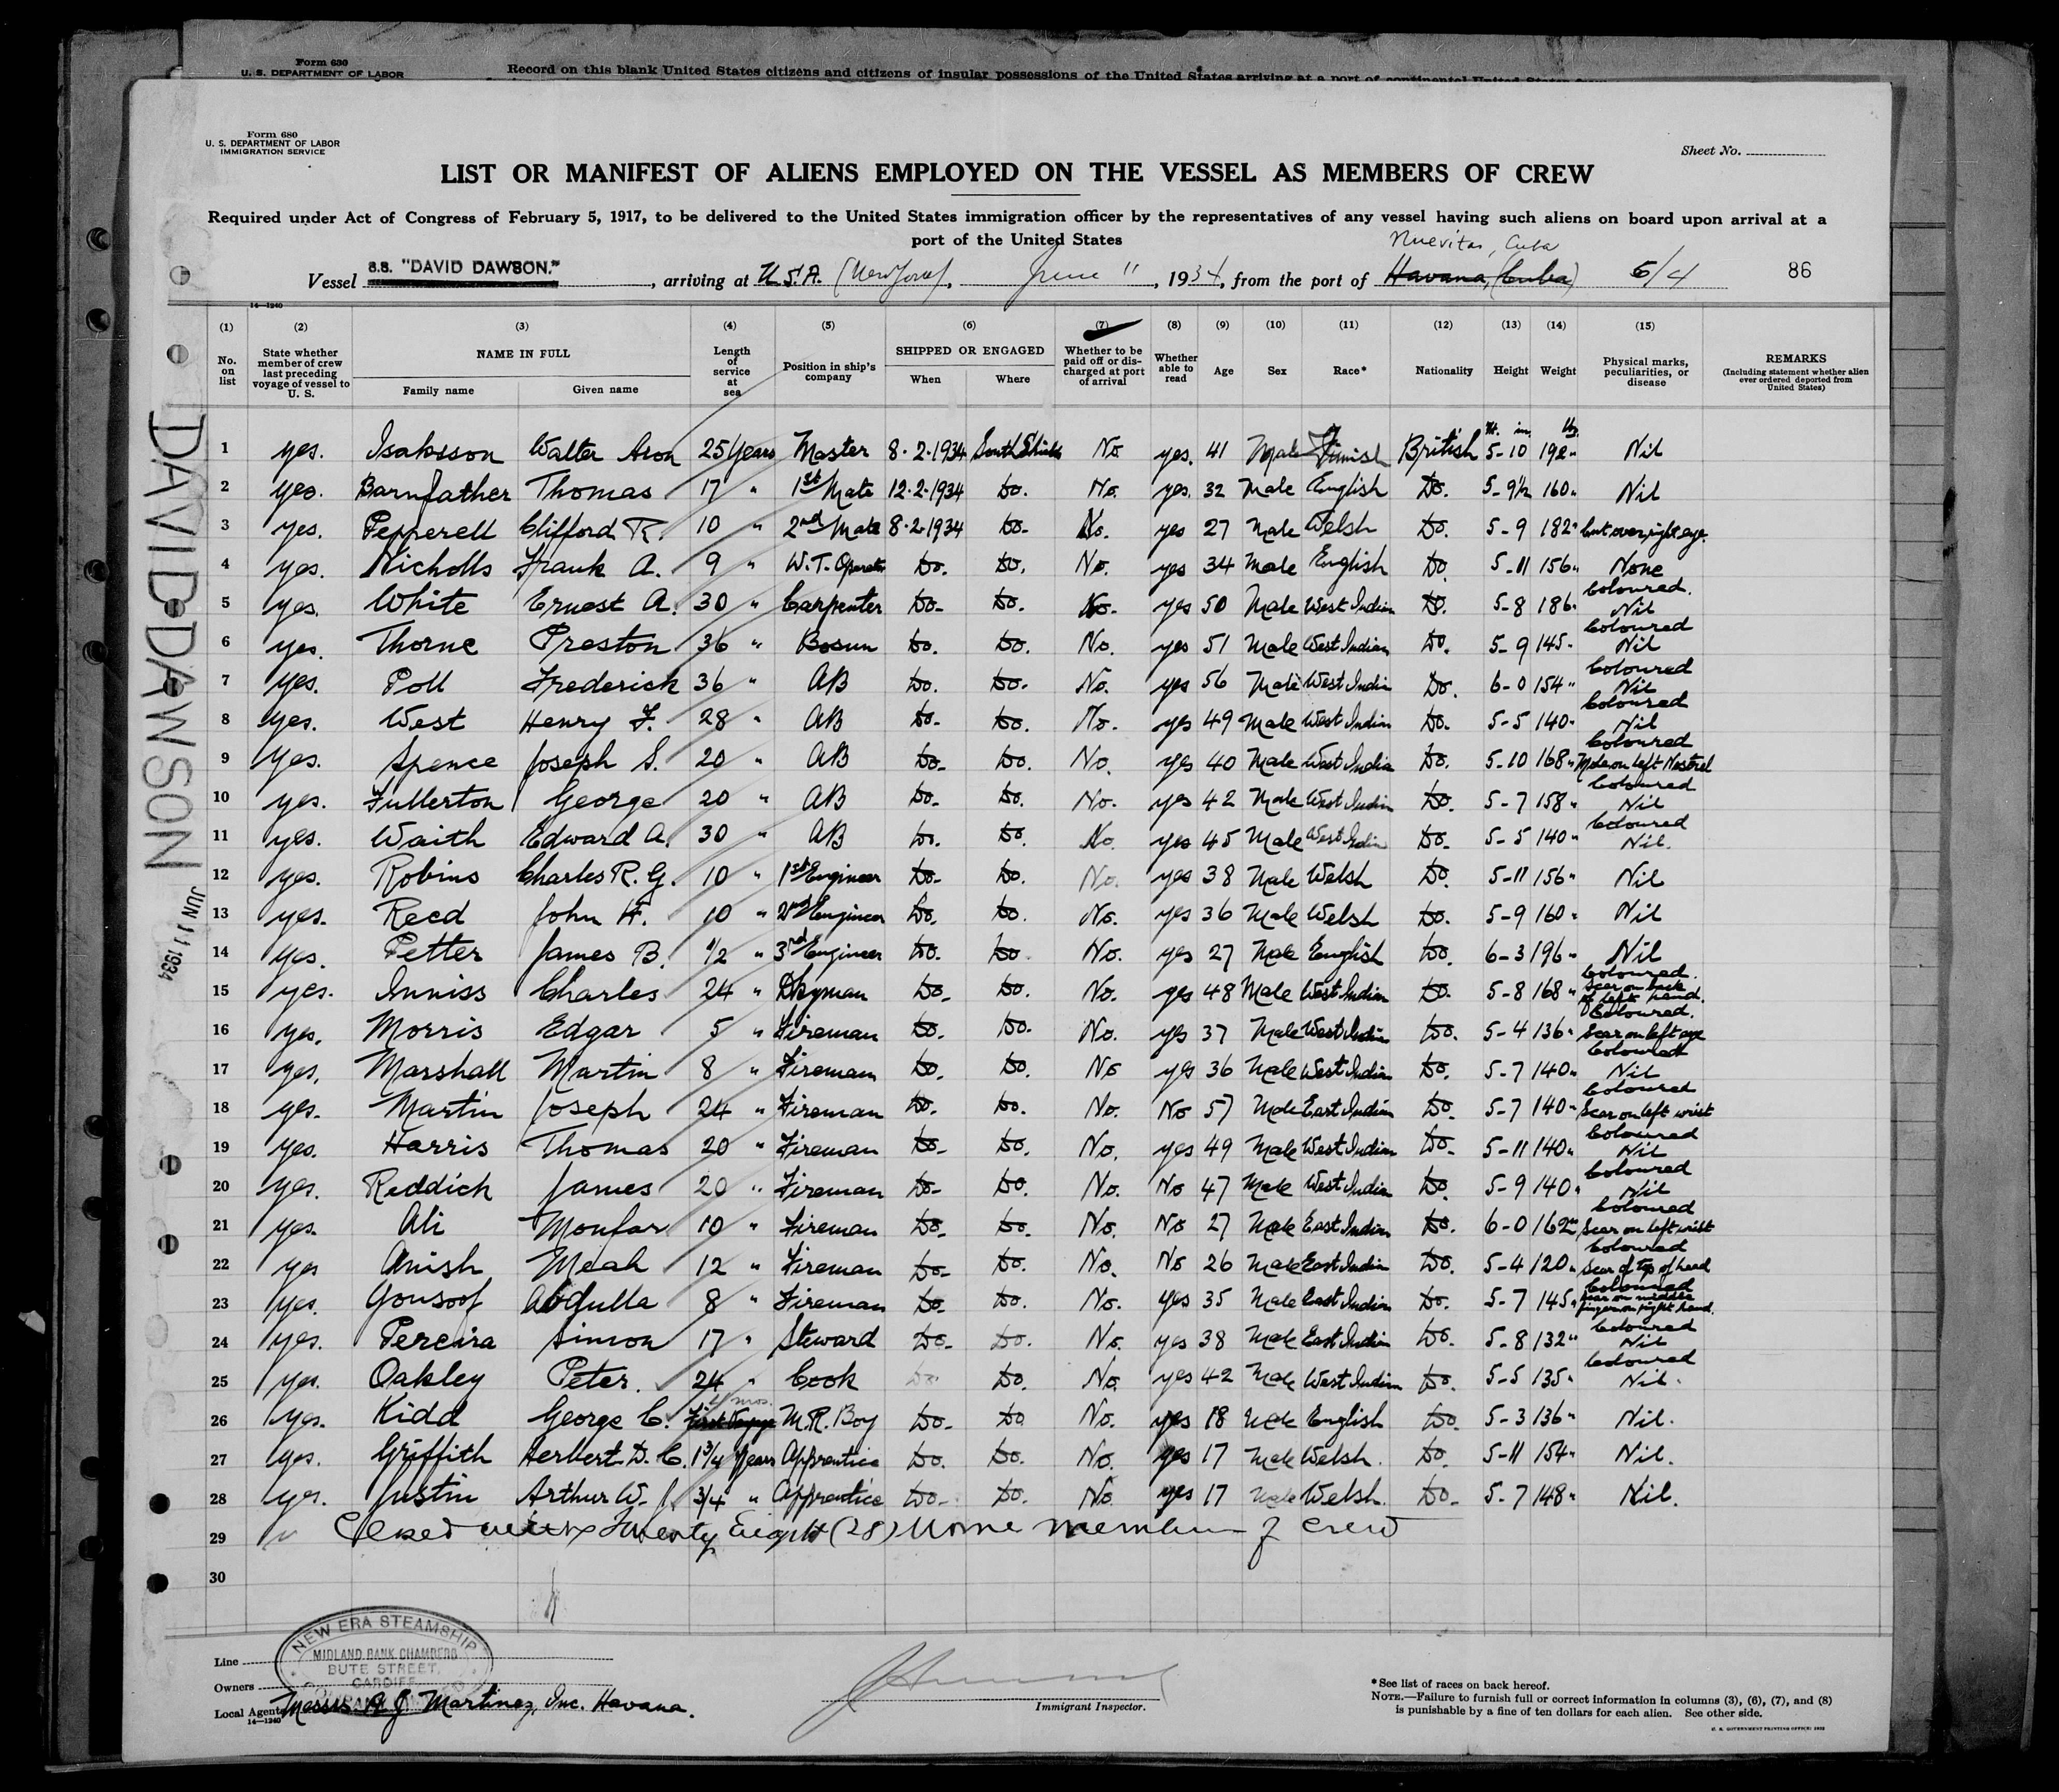 Form 630
U. S. DEPARTMENT OF LABOR
Record on this blank United States citizens and citizens of insular possessions of the United States arriving at a port of continental United States
Form 680
U. S. DEPARTMENT OF LABOR
IMMIGRATION SERVICE
Sheet No.
LIST OR MANIFEST OF ALIENS EMPLOYED ON THE VESSEL AS MEMBERS OF CREW
Required under Act of Congress of February 5, 1917, to be delivered to the United States immigration officer by the representatives of any vessel having such aliens on board upon arrival at a
port of the United States
Nuevitas, Cuba
Vessel S.S. "DAVID DAWSON." , arriving at U.S.A. (New York) , June 11 , 1934, from the port of Havana, (Cuba) 6/4 86
14—1240
(1) (2) (3) (4) (5) (6) (7) (8) (9) (10) (11) (12) (13) (14) (15)
No. on list State whether member of crew last preceding voyage of vessel to U. S. NAME IN FULL Family name Given name Length of service at sea Position in ship's company SHIPPED OR ENGAGED When Where Whether to be paid off or discharged at port of arrival Whether able to read Age Sex Race* Nationality Height Weight Physical marks, peculiarities, or disease REMARKS (Including statement whether alien ever ordered deported from United States)
ft. in. lb.
1 yes. Isaksson Walter Aron 25 Years Master 8.2.1934 South Shields No yes. 41 Male Finnish British 5-10 192" Nil
2 yes. Barnfather Thomas 17 " 1st Mate 12.2.1934 Do. No. yes. 32 Male English Do. 5-9½ 160" Nil
3 yes. Pepperell Clifford R. 10 " 2nd Mate 8.2.1934 Do- No. yes 27 Male Welsh Do. 5-9 182" Cut over right eye.
4 yes. Nicholls Frank A. 9 " W.T. Operator Do. Do. No. yes 34 Male English Do 5-11 156" None
5 yes. White Ernest A. 30 " Carpenter Do- Do. No. yes 50 Male West Indian Do. 5-8 186" Coloured. Nil
6 yes. Thorne Preston 36 " Bosun Do. Do. No. yes 51 Male West Indian Do. 5-9 145" Coloured Nil
7 yes. Poll Frederick 36 " AB Do. Do. No. yes 56 Male West Indian Do. 6-0 154" Coloured Nil
8 yes. West Henry F. 28 " AB Do- Do. No. yes 49 Male West Indian Do. 5-5 140" Coloured Nil
9 yes. Spence Joseph S. 20 " AB Do- Do. No. yes 40 Male West Indian Do. 5-10 168" Coloured Mole on left Nostrel
10 yes. Fullerton George 20 " AB Do- Do. No. yes 42 Male West Indian Do. 5-7 158" Coloured Nil
11 yes. Waith Edward A. 30 " AB Do. Do. No. yes 45 Male West Indian Do- 5-5 140" Coloured Nil.
12 yes. Robins Charles R. G. 10 " 1st Engineer Do- Do. No. yes 38 Male Welsh Do. 5-11 156" Nil
13 yes. Reed John H. 10 " 2nd Engineer Do. Do. No. yes 36 Male Welsh Do. 5-9 160" Nil
14 yes. Petter James B. ½ " 3rd Engineer Do. Do. No. yes 27 Male English Do. 6-3 196" Nil
15 yes. Inniss Charles 24 " Dkyman Do- Do. No. yes 48 Male West Indian Do. 5-8 168" Coloured. Scar on back of left hand.
16 yes. Morris Edgar 5 " Fireman Do. Do. No. yes 37 Male West Indian Do. 5-4 136" Coloured. Scar on left eye
17 yes. Marshall Martin 8 " Fireman Do. Do. No yes 36 Male West Indian Do. 5-7 140" Coloured Nil
18 yes. Martin Joseph 24 " Fireman Do. Do. No. No 57 Male East Indian Do. 5-7 140" Coloured Scar on left wrist
19 yes. Harris Thomas 20 " Fireman Do- Do. No. yes 49 Male West Indian Do- 5-11 140" Coloured Nil
20 yes. Reddick James 20 " Fireman Do- Do. No. No 47 Male West Indian Do. 5-9 140" Coloured Nil
21 yes. Ali Monfar 10 " Fireman Do- Do. No. No 27 Male East Indian Do. 6-0 162" Coloured Scar on left wrist
22 yes Anish Meah 12 " Fireman Do- Do. No. No 26 Male East Indian Do. 5-4 120" Coloured Scar of top of head
23 yes. Yousoof Abdulla 8 " Fireman Do. Do. No. yes 35 Male East Indian Do. 5-7 145" Coloured Scar on middle finger on right hand.
24 yes. Pereira Simon 17 " Steward Do- Do. No. yes 38 Male East Indian Do. 5-8 132" Coloured Nil
25 yes. Oakley Peter. 24 " Cook Do. Do. No. yes 42 Male West Indian Do. 5-5 135" Coloured Nil.
26 yes. Kidd George C. First Voyage mos. M.R. Boy Do- Do No. yes 18 Male English Do 5-3 136" Nil.
27 yes. Griffith Herbert D. C. 1¾ Years Apprentice Do. Do. No. yes 17 Male Welsh. Do 5-11 154" Nil.
28 yes. Justin Arthur W. J. 3/4 " Apprentice Do- Do. No yes 17 Male Welsh. Do- 5-7 148" Nil.
29 Closed with Twenty Eight (28) members of crew
30
DAVID DAWSON
JUN 11 1934
NEW ERA STEAMSHIP
MIDLAND BANK CHAMBERS
BUTE STREET,
CARDIFF
Line
Owners
Local Agents Messrs. A J Martinez, Inc. Havana.
14—1240
Immigrant Inspector.
*See list of races on back hereof.
NOTE.—Failure to furnish full or correct information in columns (3), (6), (7), and (8)
is punishable by a fine of ten dollars for each alien. See other side.
U. S. GOVERNMENT PRINTING OFFICE: 1932